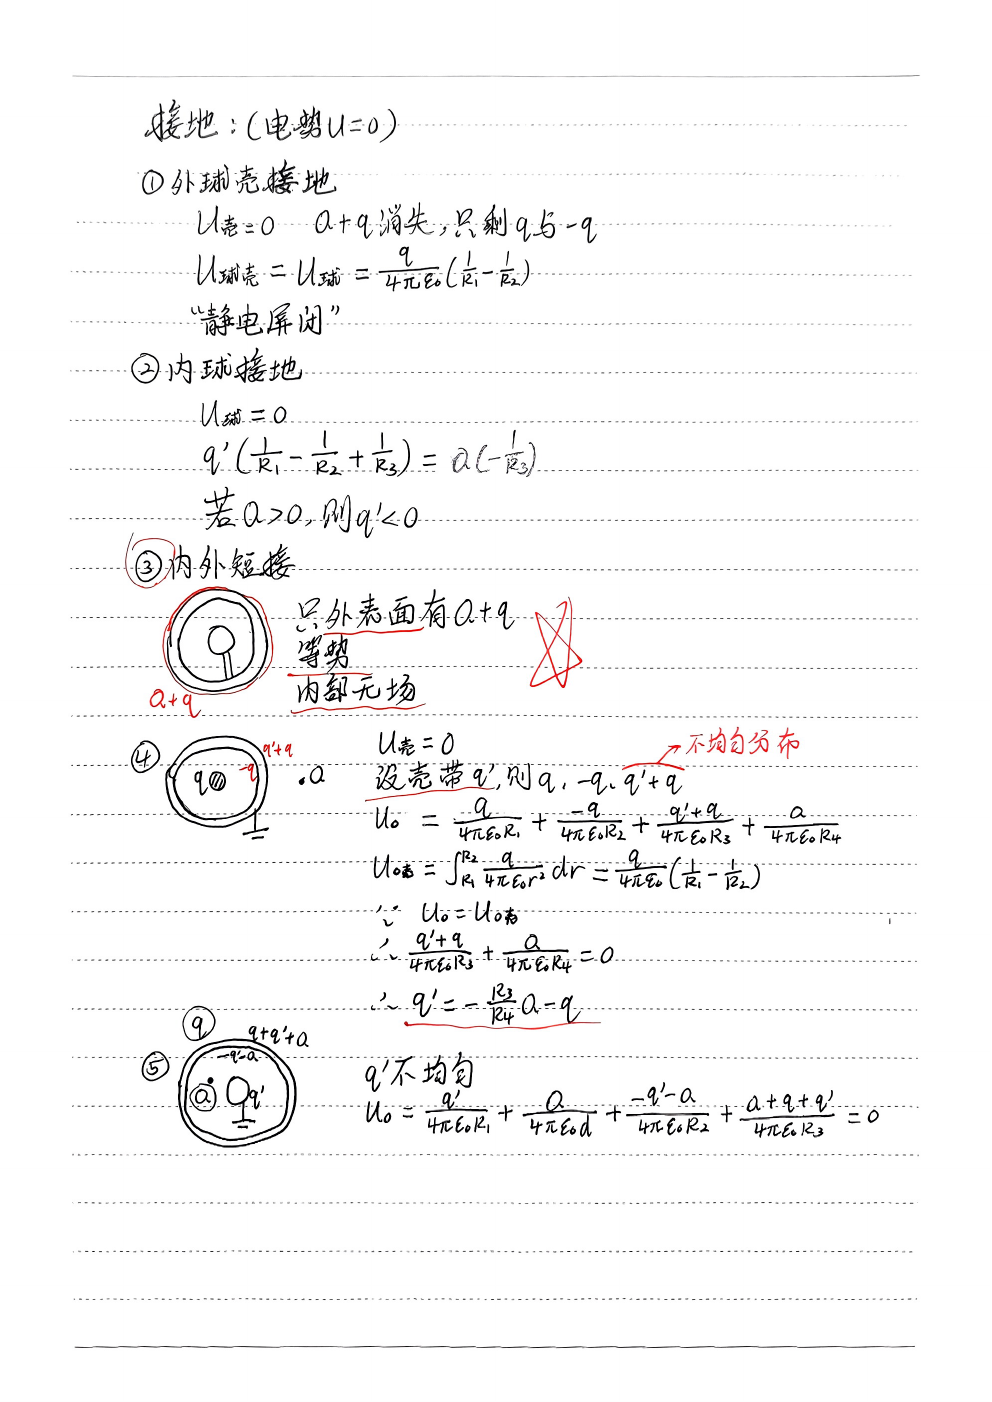 接地：(电势U=0)
①外球壳接地
U壳=0 Q+q消失，只剩q与-q
U球壳=U球=q/4πε₀(1/R₁-1/R₂)
“静电屏闭”
②内球接地
U球=0
q'(1/R₁-1/R₂+1/R₃)=Q(-1/R₃)
若Q>0，则q'<0
③内外短接
只外表面有Q+q
等势
内部无场
Q+q
④
q
-q
q'+q
.Q
U壳=0
→不均匀分布
设壳带q'，则q、-q、q'+q
U₀=q/4πε₀R₁+-q/4πε₀R₂+q'+q/4πε₀R₃+Q/4πε₀R₄
U₀壳=∫R₁R₂ q/4πε₀r² dr=q/4πε₀(1/R₁-1/R₂)
∵ U₀=U₀壳
∴ q'+q/4πε₀R₃+Q/4πε₀R₄=0
∴ q'=-R₃/R₄Q-q
⑤
q
q+q'+Q
-q'-Q
Q
q'
q'不均匀
U₀=q'/4πε₀R₁+Q/4πε₀d+-q'-Q/4πε₀R₂+Q+q+q'/4πε₀R₃=0